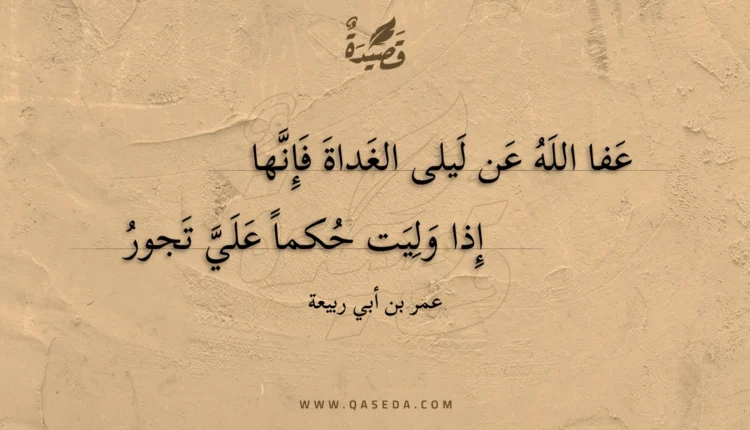 قَصِيدَةٌ
عَفا اللَهُ عَن لَيلى الغَداةَ فَإِنَّها
إِذا وَلِيَت حُكماً عَلَيَّ تَجورُ
عمر بن أبي ربيعة
WWW.QASEDA.COM